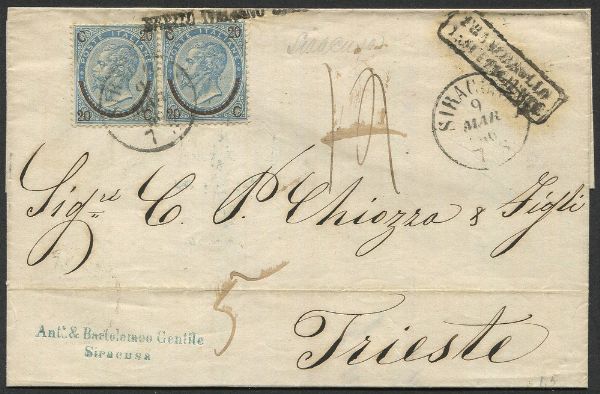 C 20 C 20
POSTE ITALIANE POSTE ITALIANE
20 C 20 C
Siracusa
FRANCOBOLLO
INSUFFICIENTE
SIRACUSA
9
MAR
66
19
Sig.ri C. P. Chiozza & Figli
5
Trieste
Ant.º & Bartolomeo Gentile
Siracusa